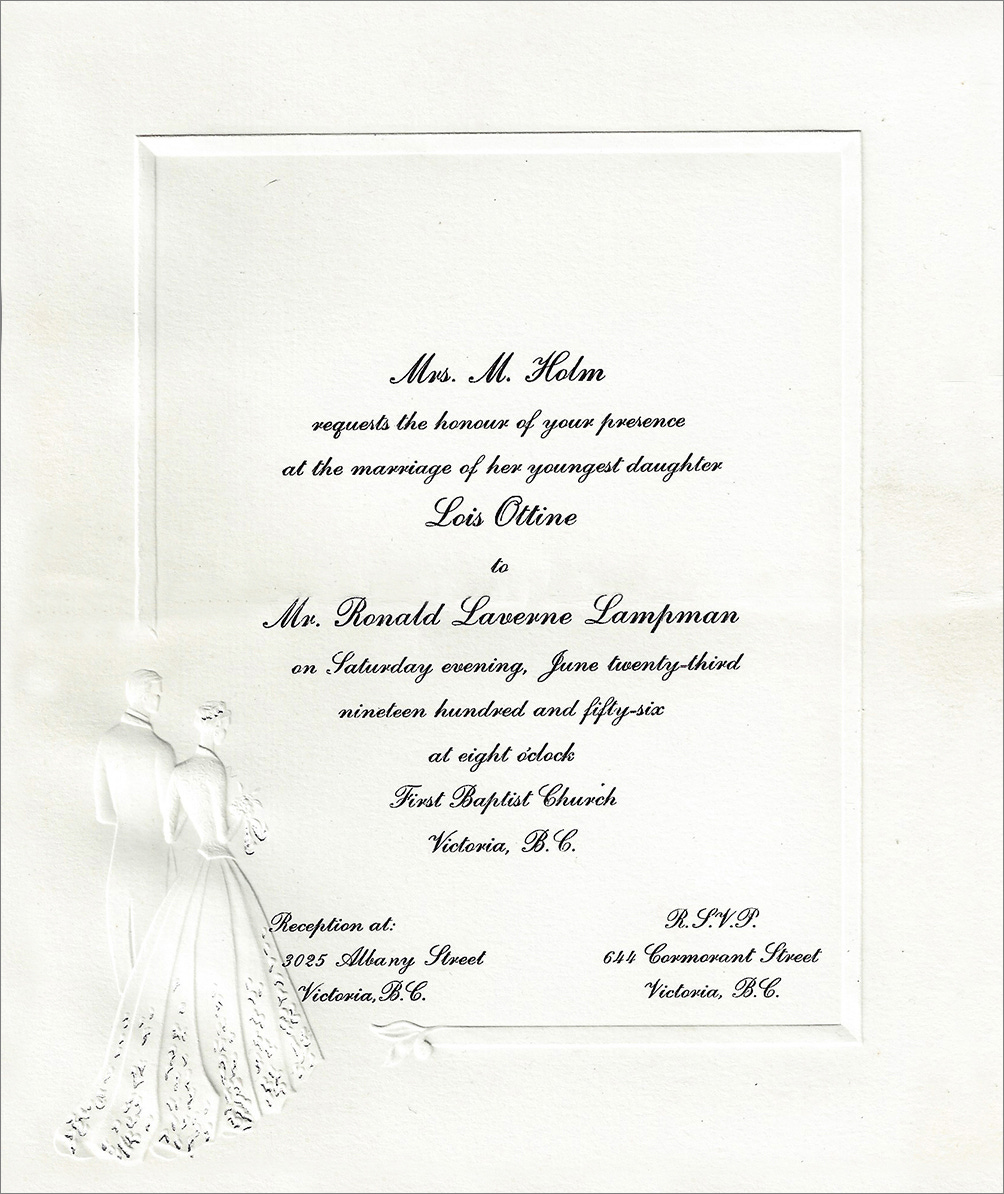 Mrs. M. Holm
requests the honour of your presence
at the marriage of her youngest daughter
Lois Ottine
to
Mr. Ronald Laverne Lampman
on Saturday evening, June twenty-third
nineteen hundred and fifty-six
at eight o'clock
First Baptist Church
Victoria, B.C.
Reception at:
3025 Albany Street
Victoria, B.C.
R.S.V.P.
644 Cormorant Street
Victoria, B.C.